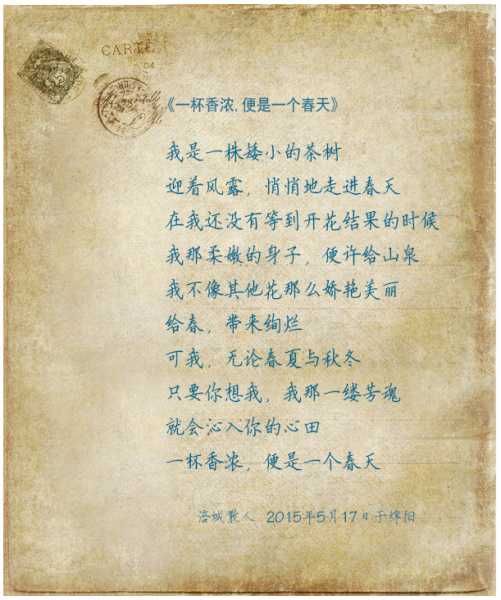 CARTE
《一杯香浓,便是一个春天》
我是一株矮小的茶树
迎着风露，悄悄地走进春天
在我还没有等到开花结果的时候
我那柔嫩的身子，便许给山泉
我不像其他花那么娇艳美丽
给春，带来绚烂
可我，无论春夏与秋冬
只要你想我，我那一缕芳魂
就会沁入你的心田
一杯香浓，便是一个春天
涪城散人 2015年5月17日于绵阳